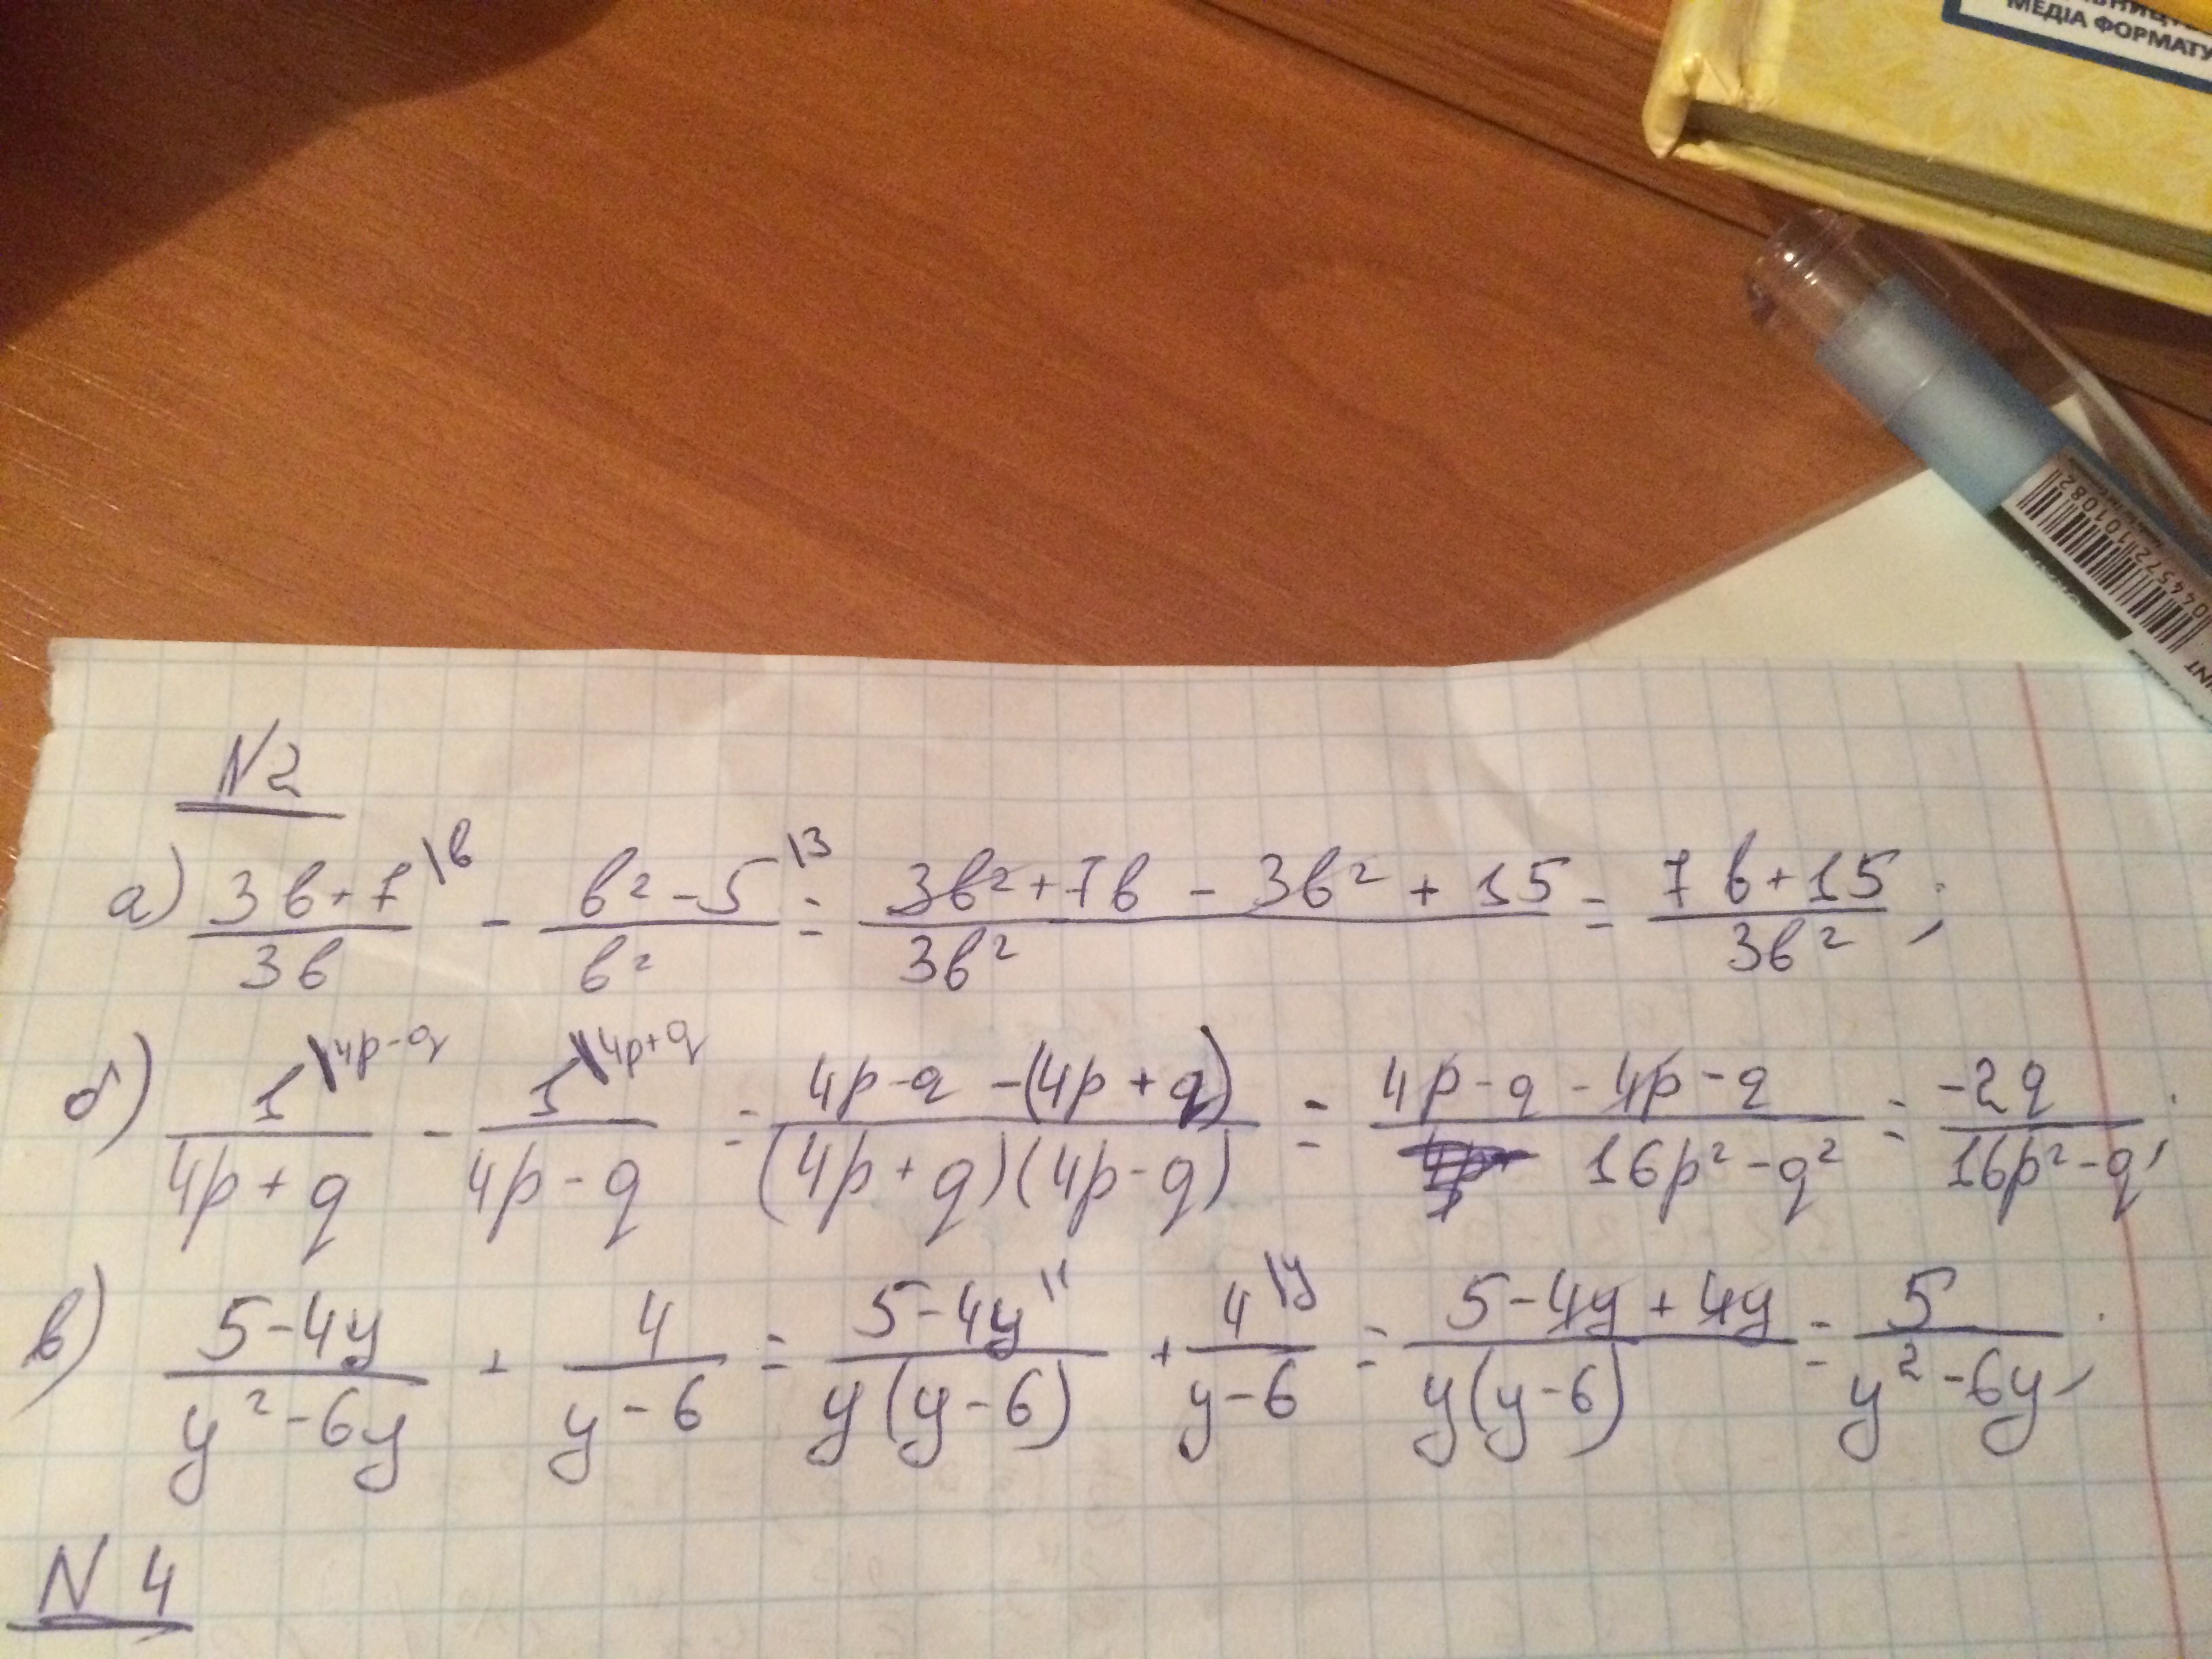 МЕДІА ФОРМАТУ
N2
а) (3в+7)/(3в) \в - (в²-5)/(в²) \3 = (3в²+7в-3в²+15)/(3в²) = (7в+15)/(3в²);
б) 1/(4p+q) \4p-q - 1/(4p-q) \4p+q = (4p-q-(4p+q))/((4p+q)(4p-q)) = (4p-q-4p-q)/(16p²-q²) = (-2q)/(16p²-q²);
в) (5-4y)/(y²-6y) + 4/(y-6) = (5-4y)/(y(y-6)) \1 + 4/(y-6) \y = (5-4y+4y)/(y(y-6)) = 5/(y²-6y);
N 4